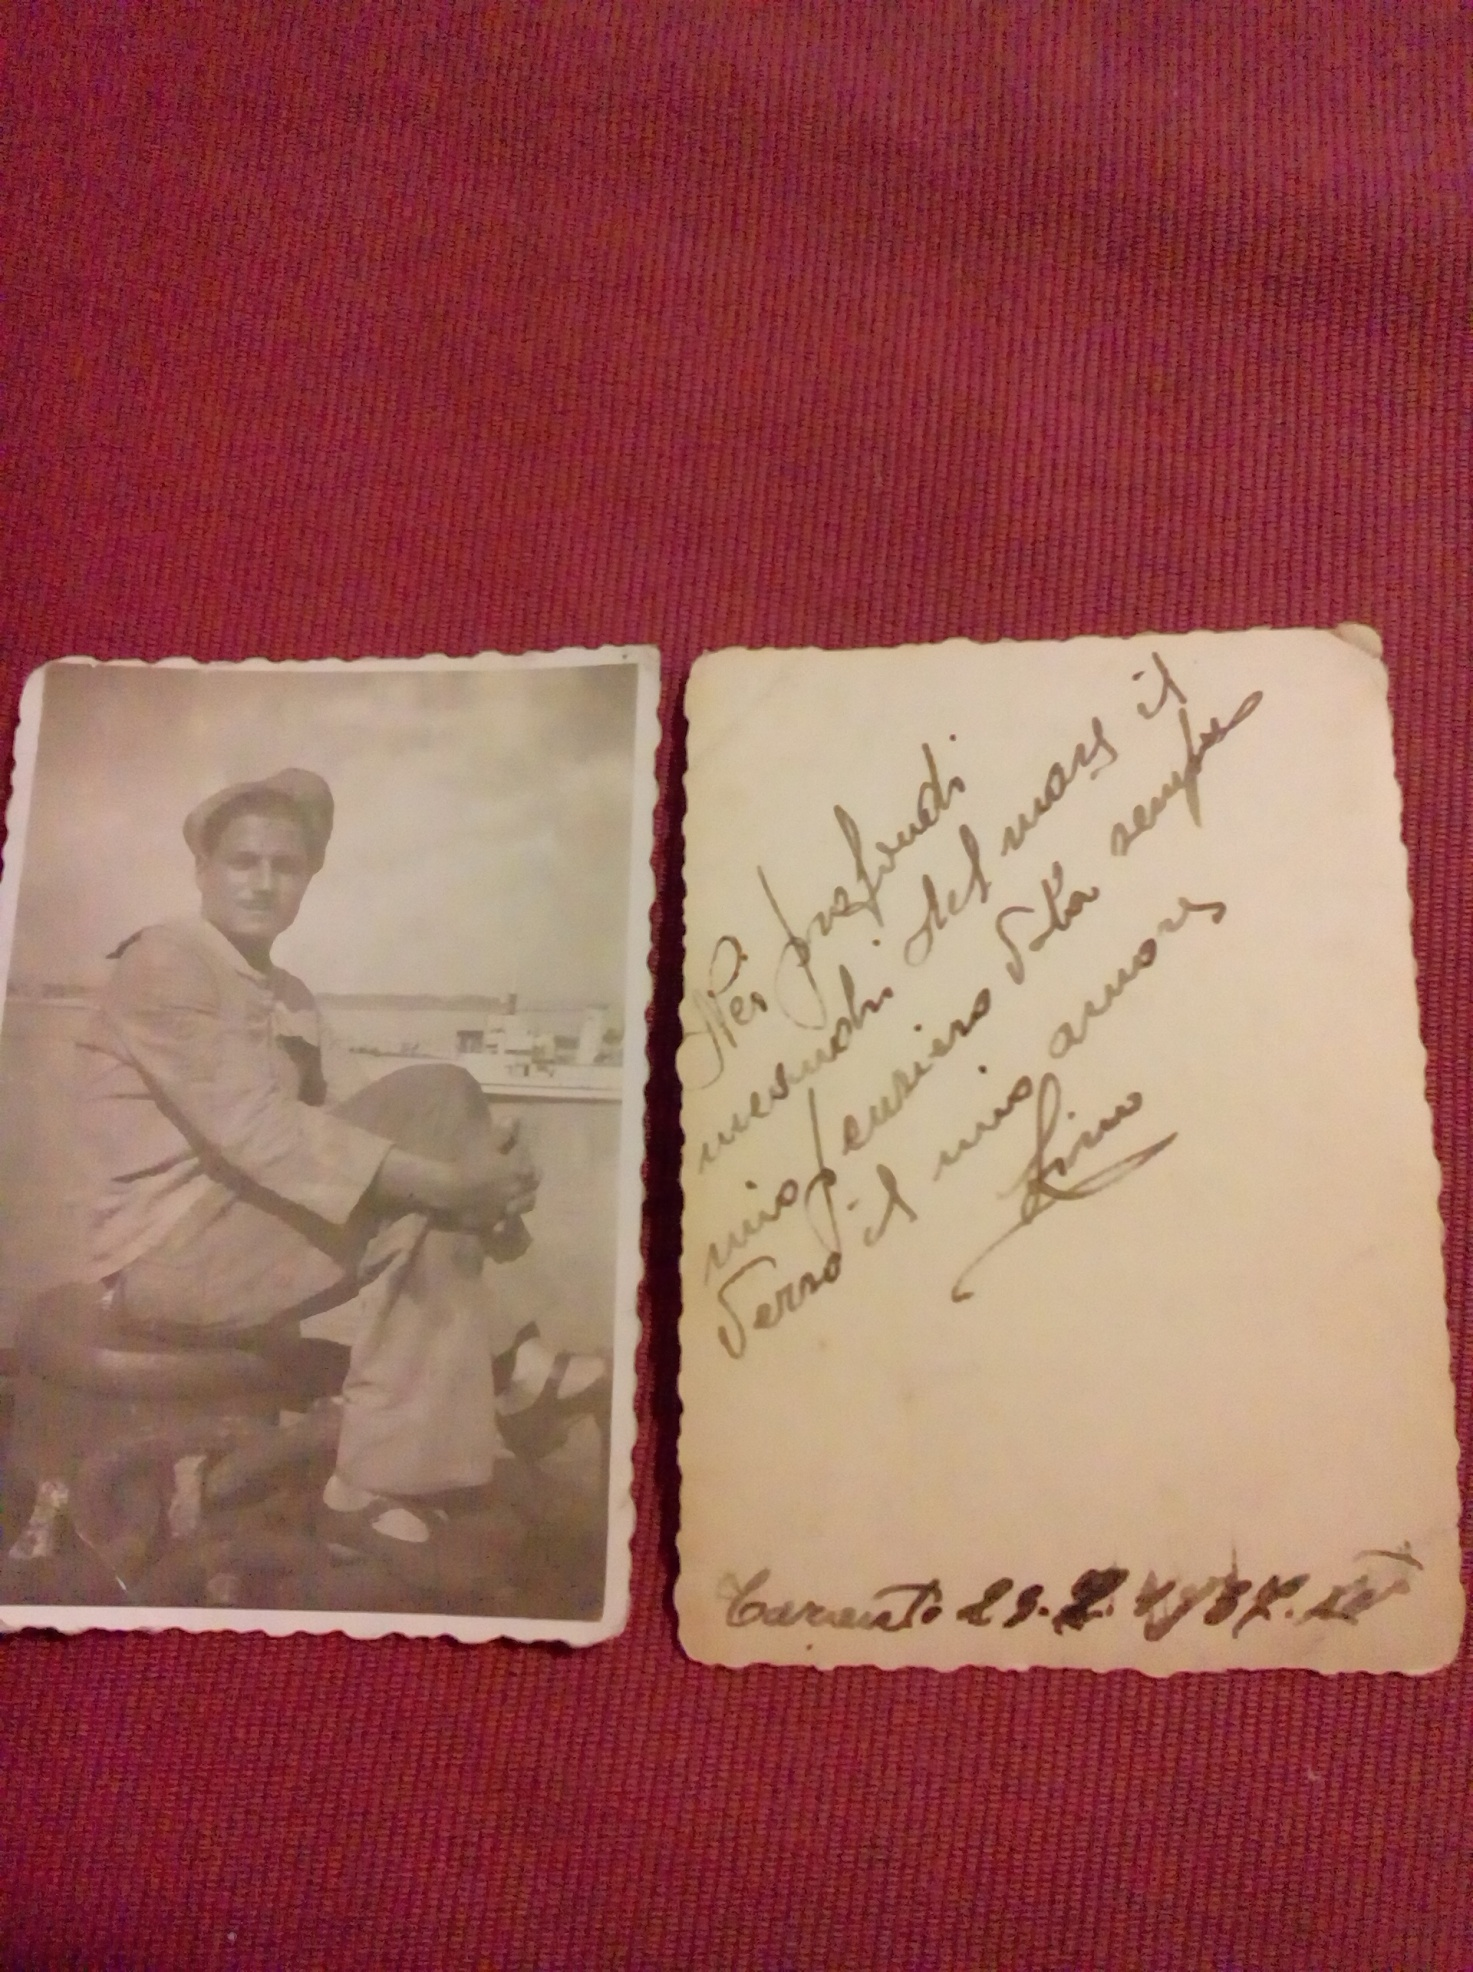 Nei profondi
meandri del mare il
mio pensiero vola sempre
verso il mio amore
Lino
Taranto 29. 1937. XV